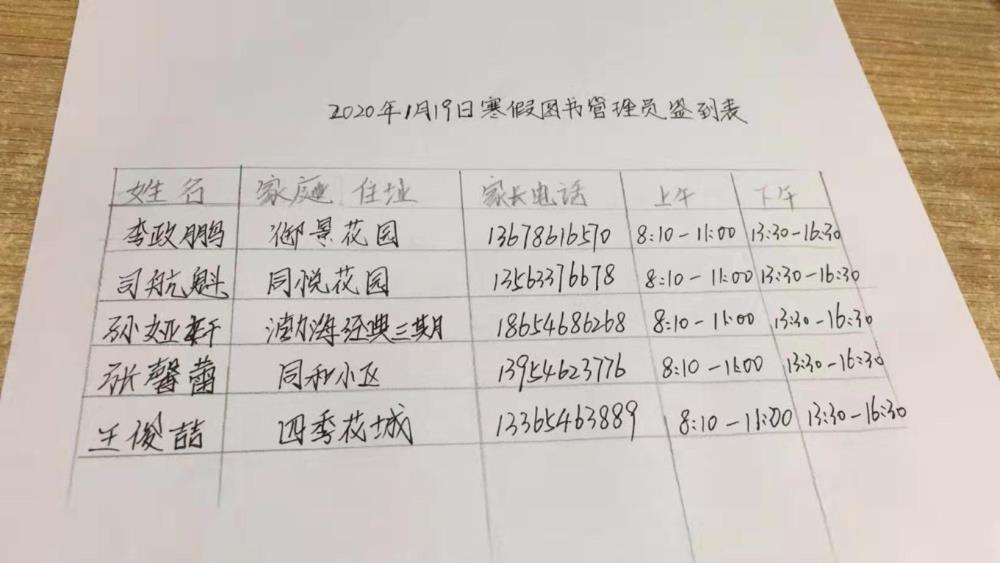 2020年1月19日寒假图书管理员签到表
姓名 家庭住址 家长电话 上午 下午
李政鹏 御景花园 13678616570 8:10-11:00 13:30-16:30
司航魁 同悦花园 13563376678 8:10-11:00 13:30-16:30
孙娅轩 渤海经典三期 18654686268 8:10-11:00 13:30-16:30
张馨蕾 同和小区 13954623776 8:10-11:00 13:30-16:30
王俊喆 四季花城 13365463889 8:10-11:00 13:30-16:30